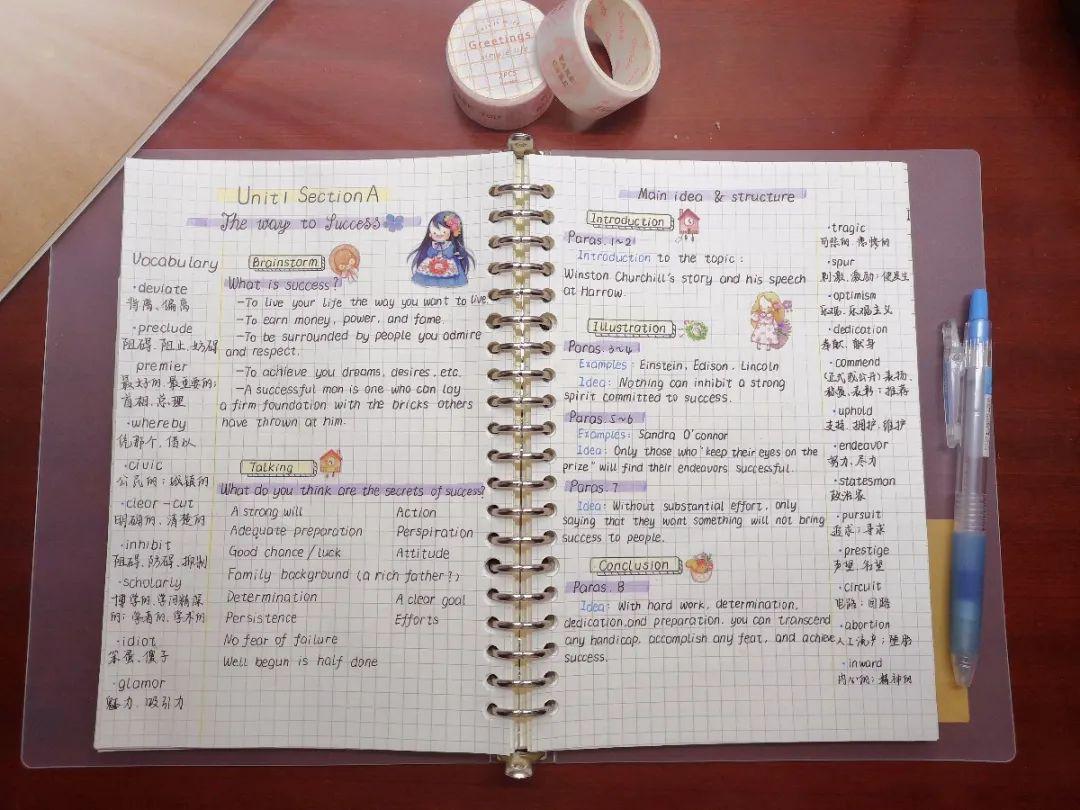 Greetings
simple life
Unit 1 Section A
The way to Success
Vocabulary
·deviate
背离、偏离
·preclude
阻碍、阻止、妨碍
premier
最好的、最重要的;
首相、总理
·whereby
凭那个、借以
·civic
公民的;城镇的
·clear-cut
明确的、清楚的
·inhibit
阻碍、防碍、抑制
·scholarly
博学的、学问精深
的;学者的、学术的
·idiot
笨蛋、傻子
·glamor
魅力、吸引力
Brainstorm
What is success?
-To live your life the way you want to live.
-To earn money, power, and fame.
-To be surrounded by people you admire
and respect.
-To achieve you dreams, desires, etc.
-A successful man is one who can lay
a firm foundation with the bricks others
have thrown at him.
Talking
What do you think are the secrets of success?
A strong will Action
Adequate preparation Perspiration
Good chance/luck Attitude
Family background (a rich father?)
Determination A clear goal
Persistence Efforts
No fear of failure
Well begun is half done
Main idea & structure
Introduction
Paras. 1~2
Introduction to the topic:
Winston Churchill's story and his speech
at Harrow.
Illustration
Paras. 3~4
Examples: Einstein, Edison, Lincoln
Idea: Nothing can inhibit a strong
spirit committed to success.
Paras. 5~6
Examples: Sandra O'connor
Idea: Only those who "keep their eyes on the
prize" will find their endeavors successful.
Paras. 7
Idea: Without substantial effort, only
saying that they want something will not bring
success to people.
Conclusion
Paras. 8
Idea: With hard work, determination,
dedication, and preparation, you can transcend
any handicap, accomplish any feat, and achieve
success.
·tragic
可悲的、悲惨的
·spur
刺激、激励;使发生
·optimism
乐观、乐观主义
·dedication
奉献、献身
·commend
(正式或公开)表扬、
称赞、表彰;推荐
·uphold
支持、拥护、维护
·endeavor
努力、尽力
·statesman
政治家
·pursuit
追求;寻求
·prestige
声望、名望
·circuit
电路;回路
·abortion
人工流产;堕胎
·inward
内心的;精神的